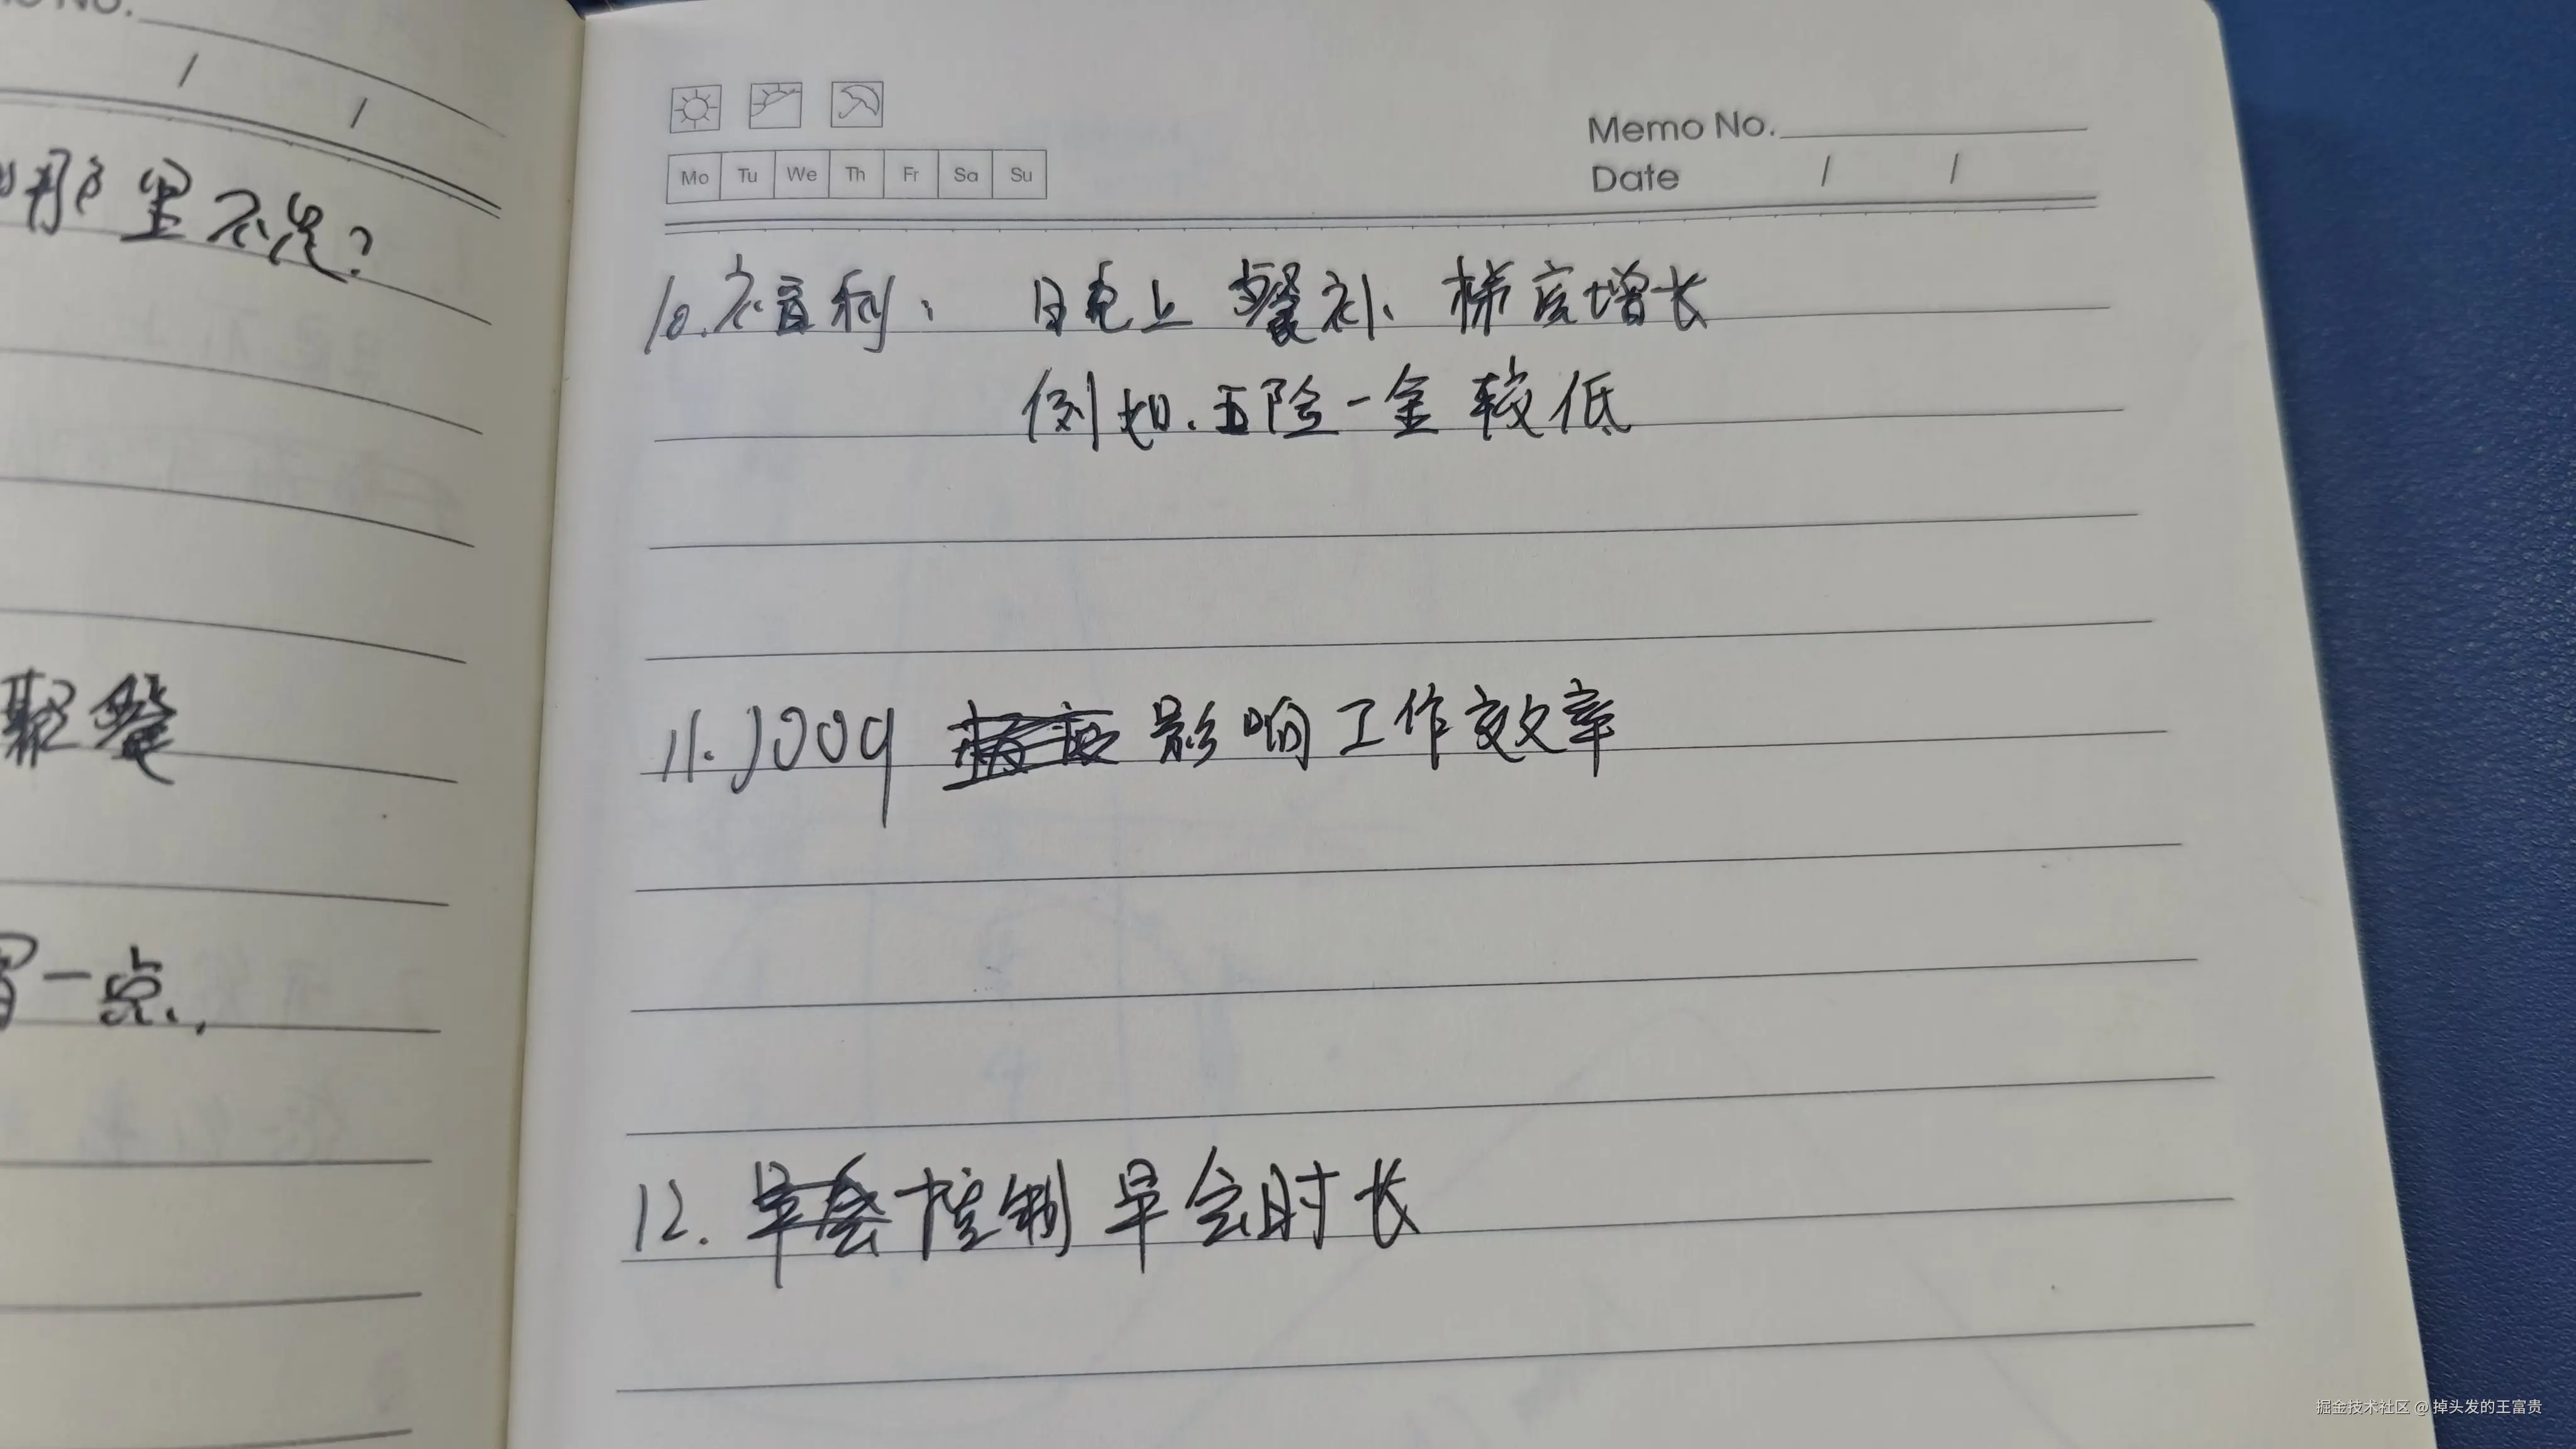 No.
/ /
那里不足?
聚餐
一点.
Memo No.
Mo Tu We Th Fr Sa Su
Date / /
10.福利: 晚上 餐补、梯度增长
例如.五险一金 较低
11. 影响工作效率
12. 控制早会时长
掘金技术社区 @ 掉头发的王富贵